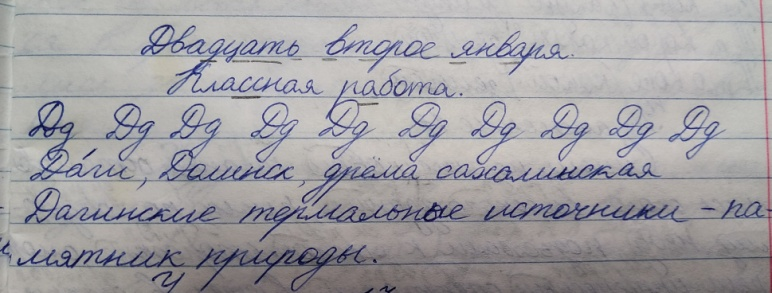 Двадцать второе января.
Классная работа.
Дд Дд Дд Дд Дд Дд Дд Дд Дд Дд
Да́ги, Долинск, дрёма сахалинская
Дагинские термальные источники – па-
мятник природы.